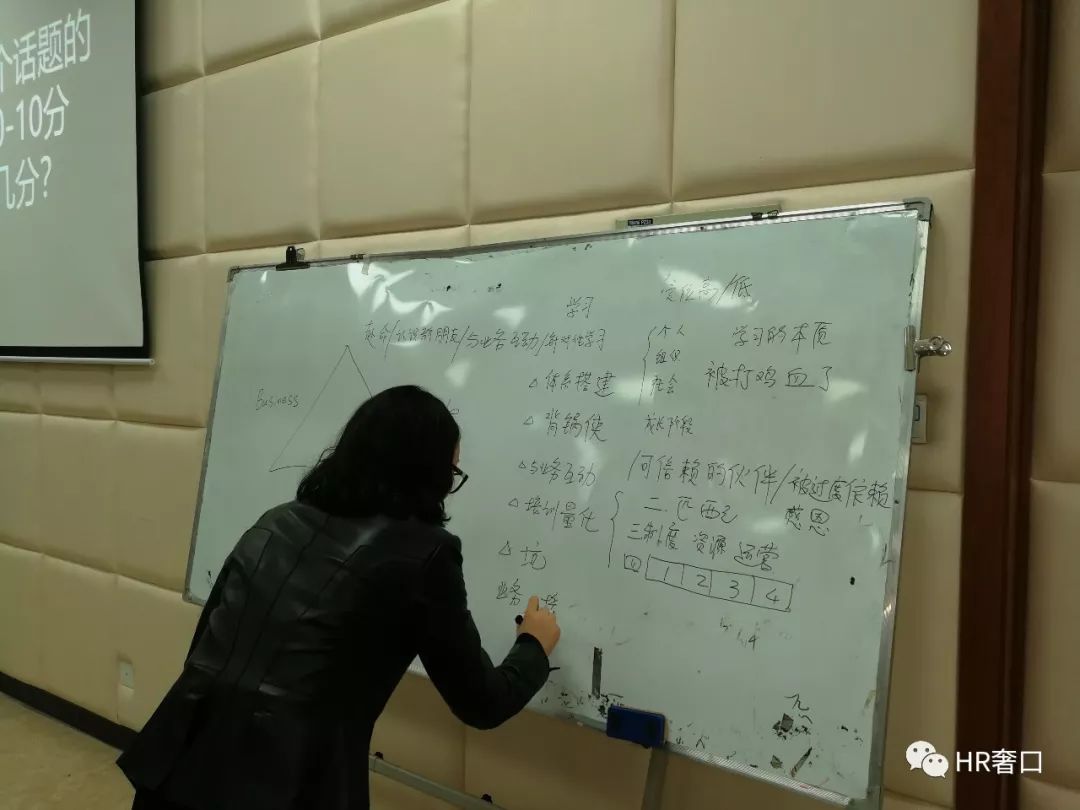 个话题的
0-10分
几分?
学习
定位高/低
使命/认识新朋友/与业务互动/针对性学习
个人
组织
社会
学习的本质
被打鸡血了
Business
△ 体系搭建
△ 背锅侠
成长阶段
△与业务互动
/何信赖的伙伴/被过度信赖
△培训量化
二.匹配
感恩
三制度 资源 运营
1 2 3 4
△ 坑
业务
HR奢口